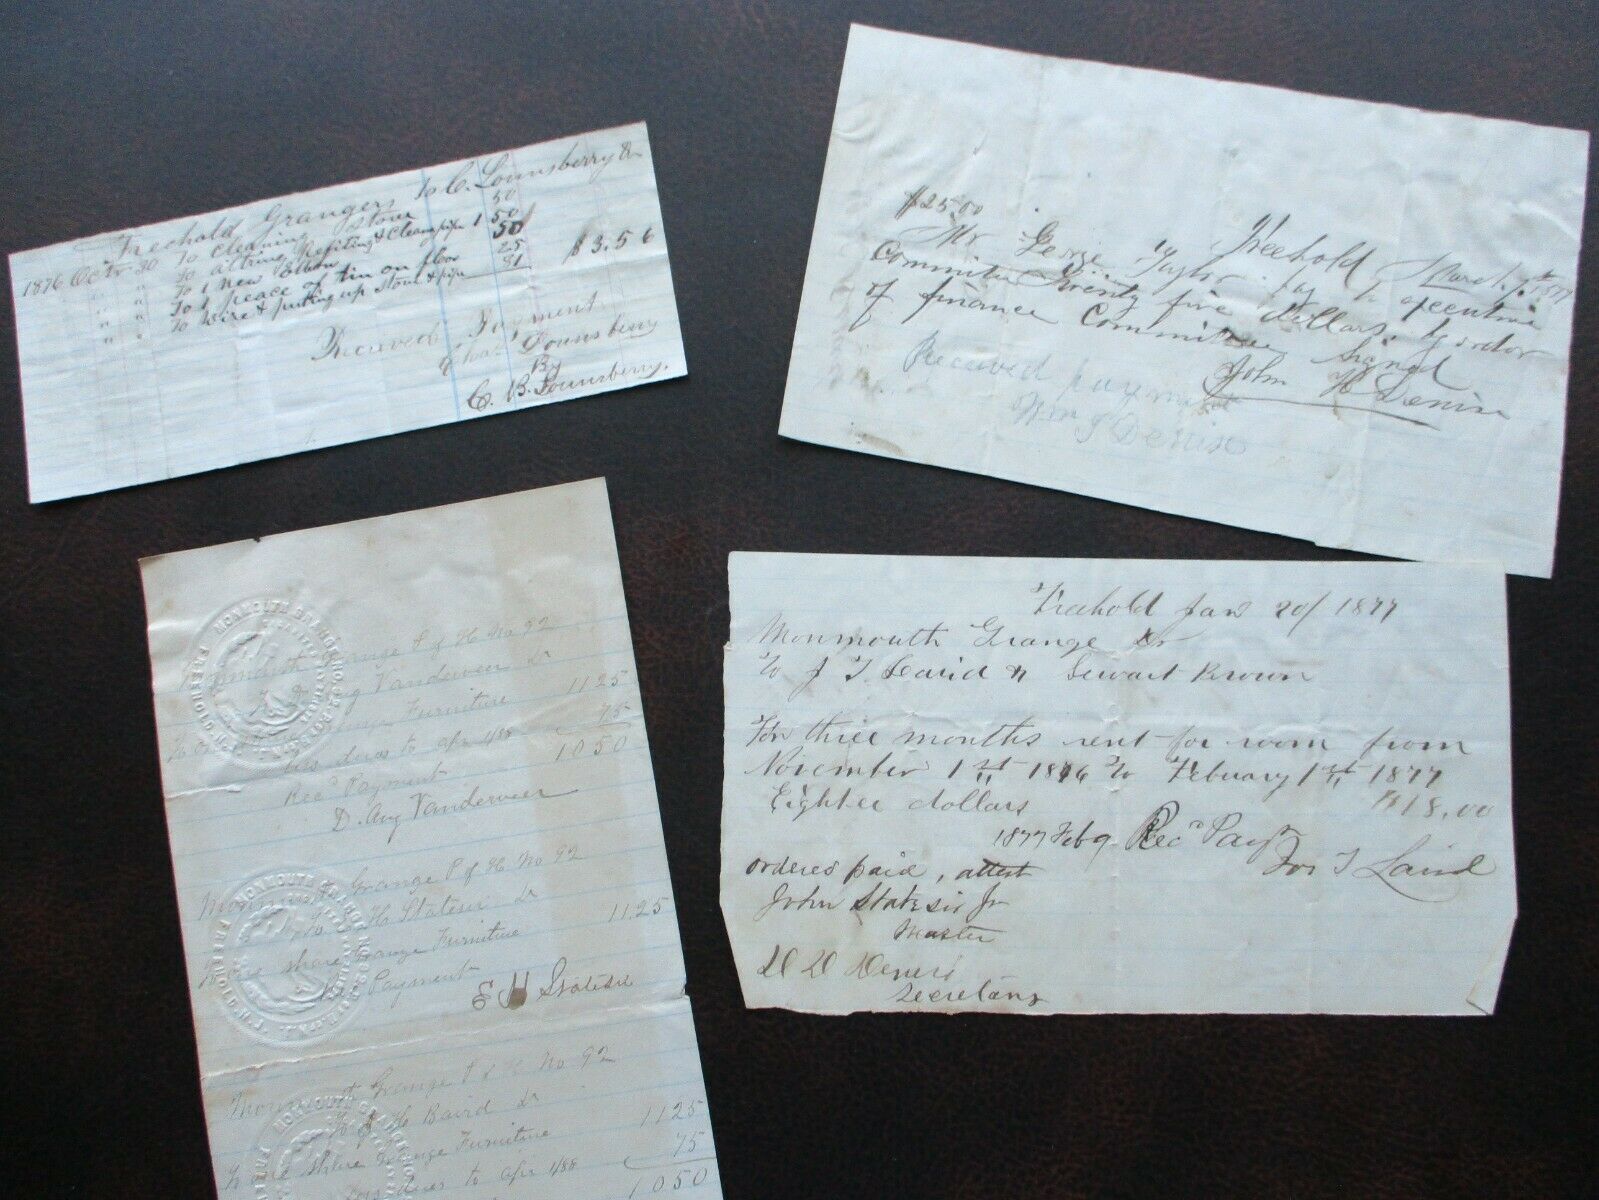 Freehold Grangers to C. Lounsberry Dr
1876 Octr 30 To Cleaning Stove 50
" " To altring Refiting & Cleang pipe 1 50
" " To 1 New Elbow 50
" " To 1 peace of tin on floor 25
" " To Wire & putting up Stove & pipe 81
$3.56
Received Payment
Chas Lounsberry
By
C. B. Lounsberry.
$25.00
Freehold March 7th 1877
Mr George Taylor pay to executive
Committee Twenty five dollars by order
of finance Committee Signed
John H Denise
Received payment
Wm J Denise
Monmouth Grange P of H No 92
To D Aug Vanderveer Dr
To one share Grange Furniture 11 25
less dues to Apr 1/88 75
Recd Payment 10 50
D. Aug Vanderveer
Monmouth Grange P of H No 92
To E H Statesir Dr
To one share Grange Furniture 11.25
Recd Payment
E H Statesir
Monmouth Grange P of H No 92
To J H Baird Dr
To one share Grange Furniture 11 25
less dues to Apr 1/88 75
10 50
MONMOUTH GRANGE NO. 92
FREEHOLD N.J.
MONMOUTH GRANGE NO. 92
FREEHOLD N.J.
MONMOUTH GRANGE NO.
Freehold Jan 20/1877
Monmouth Grange Dr
To J T Laird & Stewart Brown
For three months rent for room from
November 1st 1876 to February 1st 1877
Eighteen dollars $18.00
1877 Feb 9 Recd Payt
Jos T Laird
ordered paid, attest
John Statesir Jr
Master
D D Denise
Secretary